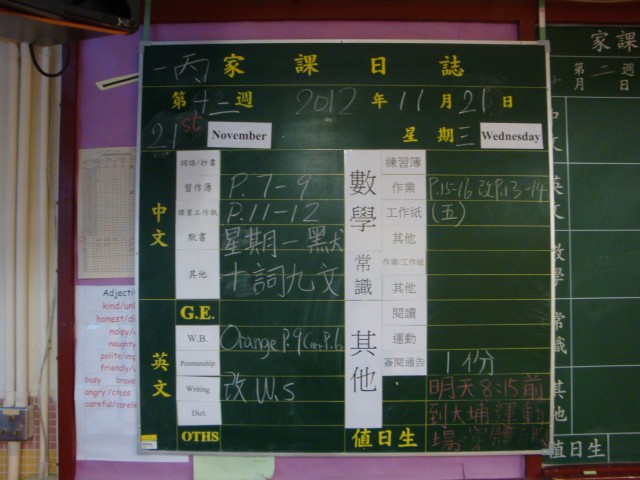 一丙 家課日誌
第十二週 2012年11月21日
21st November 星期三 Wednesday
中文
詞語/抄書
習作簿 P.7-9
讀書工作紙 P.11-12
默書 星期一默
其他 十詞九文
英文
G.E.
W.B. Orange P.9 P.6
Penmanship
Writing 改 W.s
Dict
OTHS
數學
練習簿
作業 P.15-16 改P.13-14
工作紙 (五)
其他
常識
作業/工作紙
其他
其他
閱讀
運動
簽閱通告 1份
明天8:15前
到大埔運動
場
值日生
家課
第二週
月 日
中文
英文
數學
常識
其他
值日生
Adjecti
kind/un
honest/di
noisy/
naughty
polite/imp
friendly/
busy brave
angry/cross
careful/carele